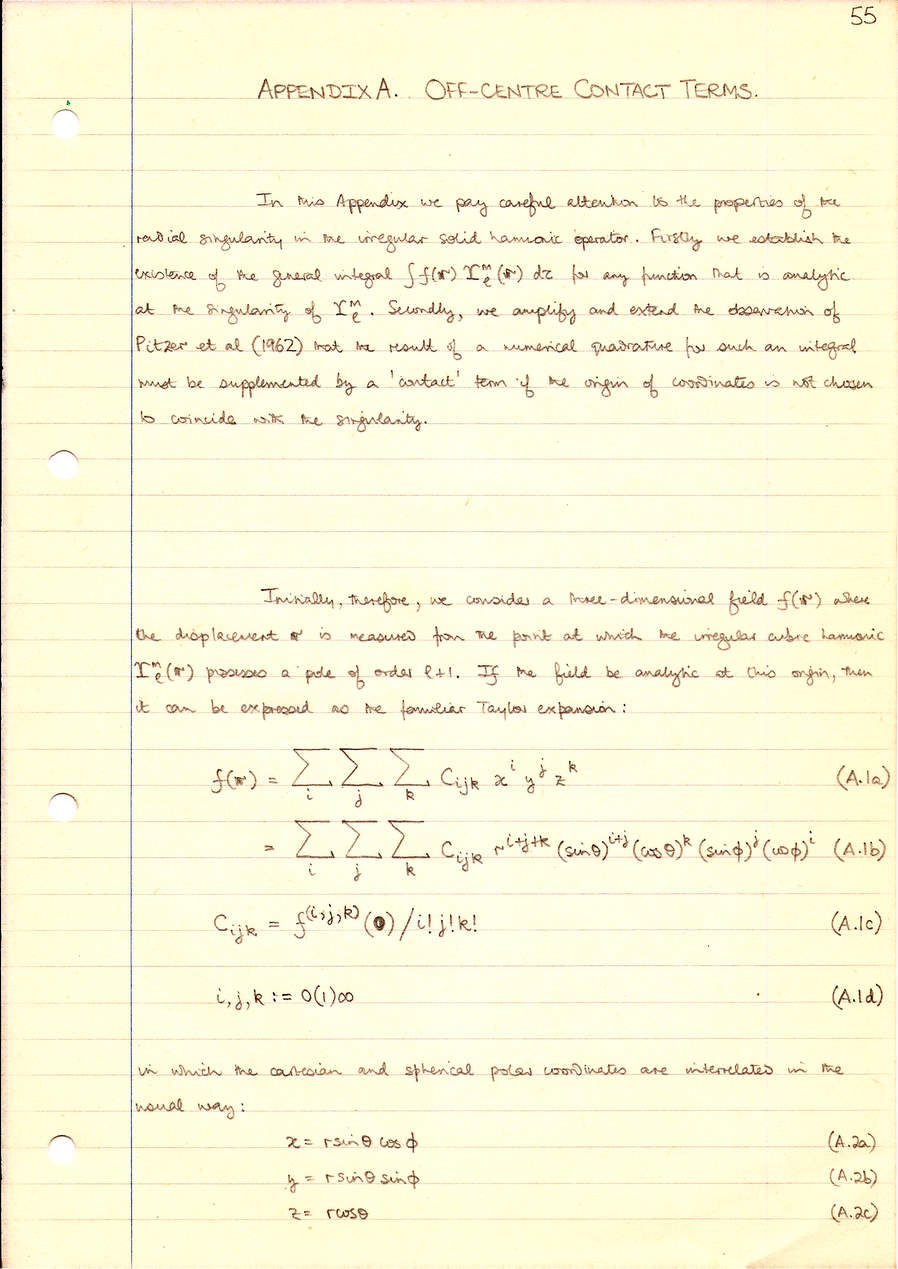 55
APPENDIX A. OFF-CENTRE CONTACT TERMS.
In this Appendix we pay careful attention to the properties of the
radial singularity in the irregular solid harmonic operator. Firstly we establish the
existence of the general integral ∫ f(𝐫) Υₗᵐ(𝐫) dτ for any function that is analytic
at the singularity of Υₗᵐ. Secondly, we amplify and extend the observation of
Pitzer et al (1962) that the result of a numerical quadrature for such an integral
must be supplemented by a 'contact' term if the origin of coordinates is not chosen
to coincide with the singularity.
Initially, therefore, we consider a three-dimensional field f(𝐫) where
the displacement 𝐫 is measured from the point at which the irregular cubic harmonic
Υₗᵐ(𝐫) posesses a pole of order ℓ+1. If the field be analytic at this origin, then
it can be expressed as the familiar Taylor expansion:
f(𝐫) = ∑ᵢ ∑ⱼ ∑ₖ Cᵢⱼₖ xⁱ yʲ zᵏ (A.1a)
= ∑ᵢ ∑ⱼ ∑ₖ Cᵢⱼₖ rⁱ⁺ʲ⁺ᵏ (sinθ)ⁱ⁺ʲ (cosθ)ᵏ (sinϕ)ʲ (cosϕ)ⁱ (A.1b)
Cᵢⱼₖ = f⁽ⁱ,ʲ,ᵏ⁾(0) / i! j! k! (A.1c)
i, j, k := 0(1)∞ (A.1d)
in which the cartesian and spherical polar coordinates are interrelated in the
usual way:
x = r sinθ cosϕ (A.2a)
y = r sinθ sinϕ (A.2b)
z = r cosθ (A.2c)